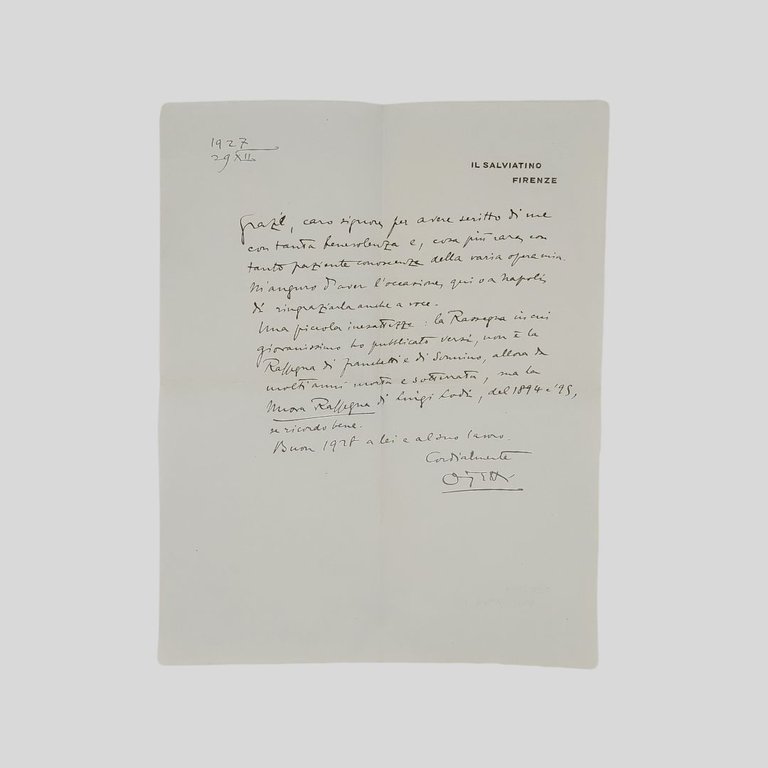 1927
29 XII
IL SALVIATINO
FIRENZE
Grazie, caro signore, per avere scritto di me
con tanta benevolenza e, cosa più rara, con
tanto paziente conoscenza della varia opera mia.
M'auguro d'aver l'occasione, qui o a Napoli,
di ringraziarla anche a voce.
Una piccola inesattezza: la Rassegna in cui
giovanissimo ho pubblicato versi, non è la
Rassegna di Franchetti e di Sonnino, allora da
molti anni morta e sotterrata, ma la
Nuova Rassegna di Luigi Lodi, del 1894 e '95,
se ricordo bene.
Buon 1928 a lei e al suo lavoro.
Cordialmente
Ojetti